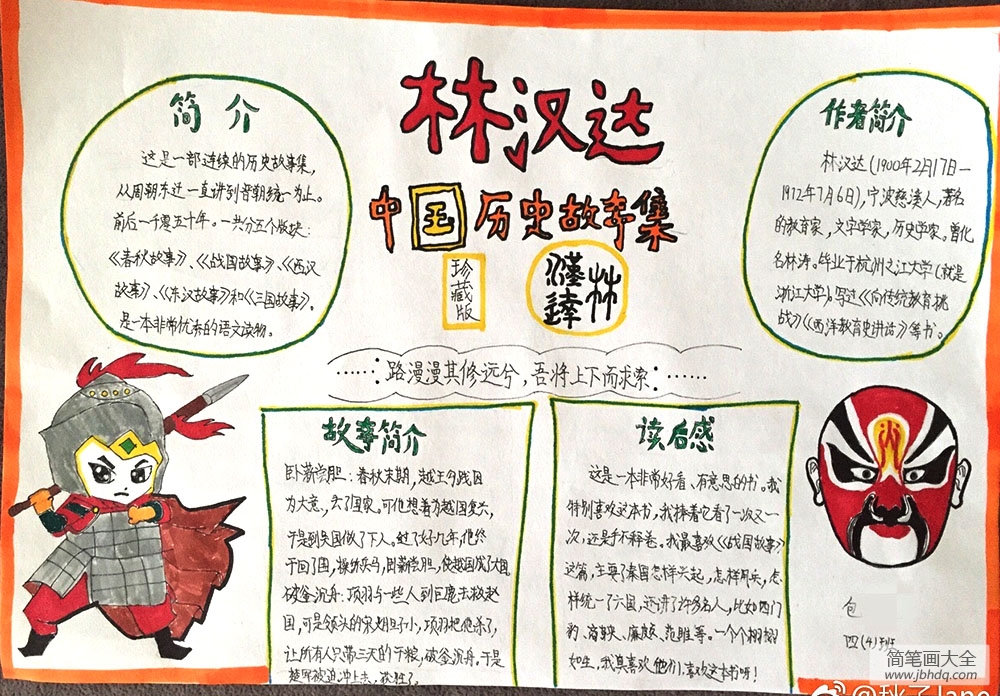 林汉达
中国历史故事集
珍藏版
林
漢達
简介
这是一部连续的历史故事集，
从周朝东迁一直讲到晋朝统一为止。
前后一千零五十年。一共分五个版块：
《春秋故事》、《战国故事》、《西汉
故事》、《东汉故事》和《三国故事》。
是一本非常优秀的语文读物。
作者简介
林汉达(1900年2月17日—
1972年7月6日)，宁波慈溪人，著名
的教育家，文字学家，历史学家。曾化
名林涛。毕业于杭州之江大学(就是
浙江大学)。写过《向传统教育挑
战》《西洋教育史讲话》等书。
……：路漫漫其修远兮，吾将上下而求索：……
故事简介
卧薪尝胆：春秋末期，越王勾践因
为大意，丢了国家。可他想着为越国复兴，
于是到吴国做了下人。过了好几年，他终
于回了国，操练兵马，卧薪尝胆，使越国成了大国
破釜沉舟：项羽与一些人到巨鹿去救赵
国，可是领头的宋胆子小，项羽把他杀了，
让所有人只带三天的干粮，破釜沉舟。于是
楚军被迫冲上去，获胜了。
读后感
这是一本非常好看、有意思的书。我
特别喜欢这本书，我捧着它看了一次又一
次，还是手不释卷。我最喜欢《战国故事》
这篇，主要了秦国怎样兴起，怎样用兵，怎
样统一了六国，还讲了许多名人，比如西门
豹、商鞅、廉颇、范雎等。一个个栩栩
如生，我真喜欢他们，喜欢这本书呀！
包
四(4)班
简笔画大全
www.jbhdq.com